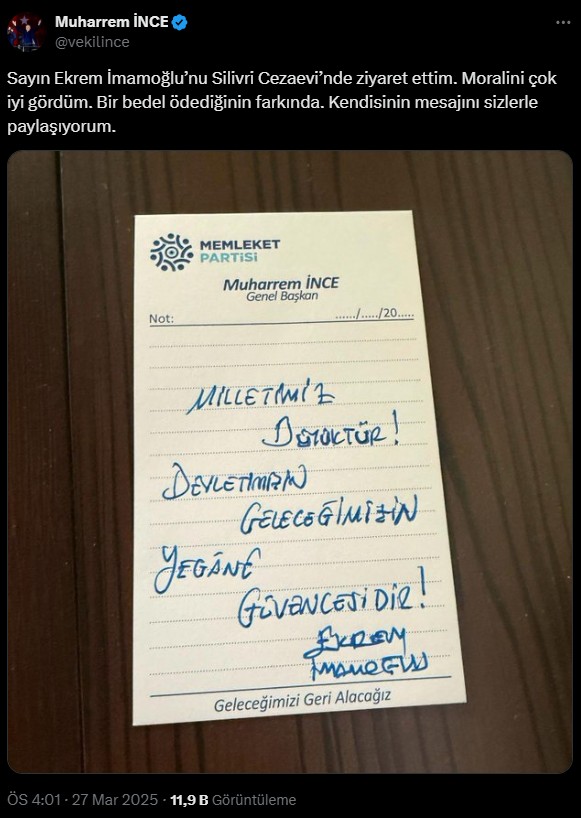 Muharrem İNCE
@vekilince
Sayın Ekrem İmamoğlu’nu Silivri Cezaevi’nde ziyaret ettim. Moralini çok
iyi gördüm. Bir bedel ödediğinin farkında. Kendisinin mesajını sizlerle
paylaşıyorum.
MEMLEKET
PARTİSİ
Muharrem İNCE
Genel Başkan
Not: ....../...../20.....
MİLLETİMİZ
BÜYÜKTÜR!
DEVLETİMİZİN
GELECEĞİMİZİN
YEGÂNE
GÜVENCESİDİR!
EKREM
İMAMOĞLU
Geleceğimizi Geri Alacağız
ÖS 4:01 · 27 Mar 2025 · 11,9 B Görüntüleme